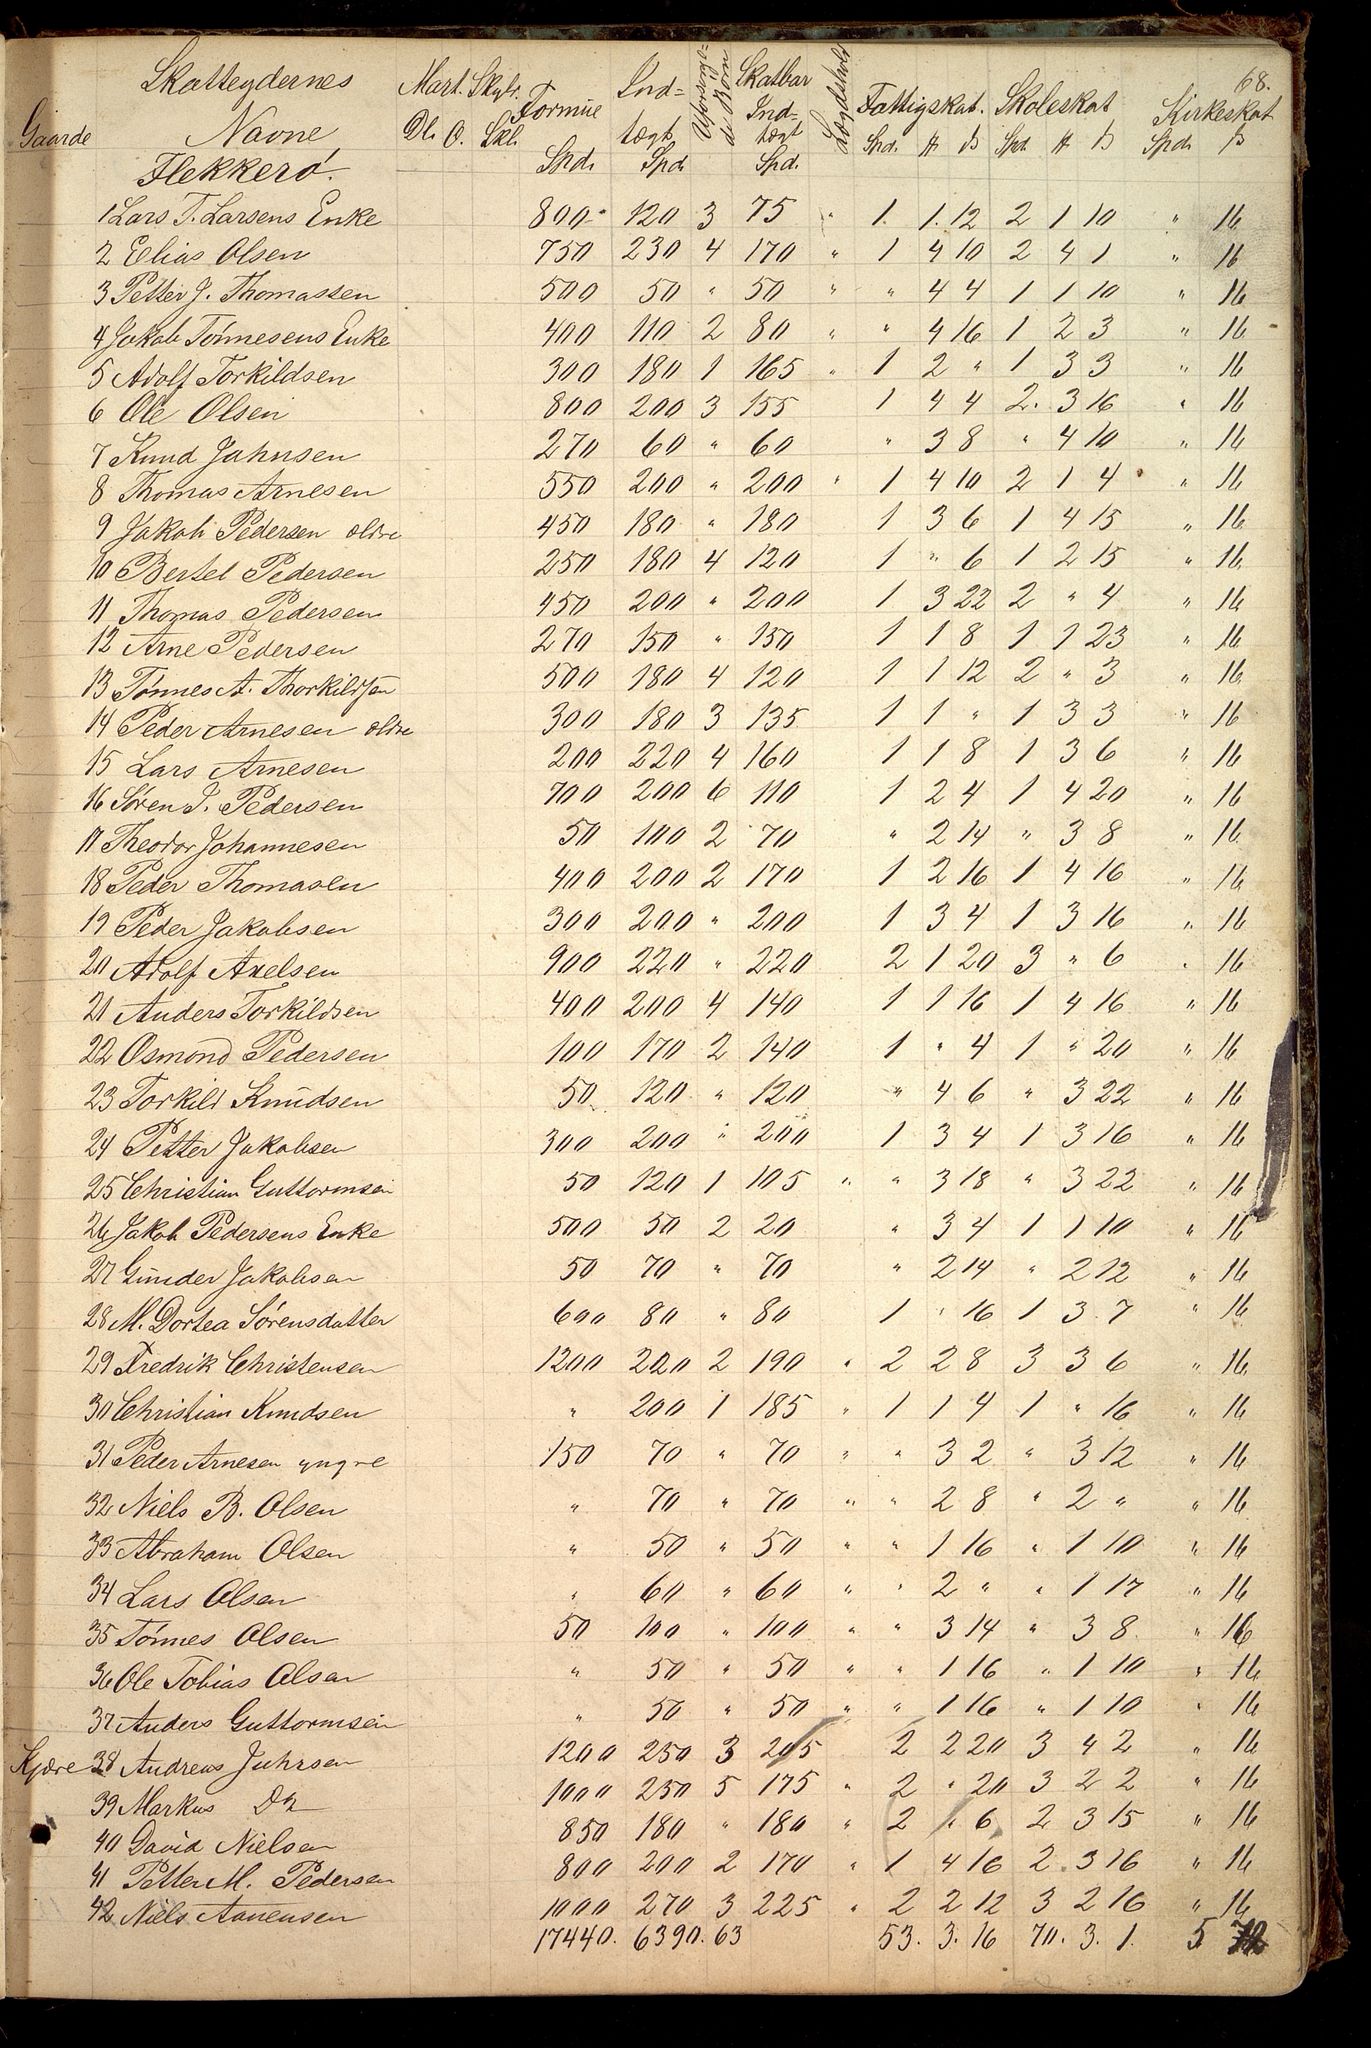 68.
Gaarde Skatteydernes Navne Mart. Skyld. Dl. O. Skl. Formue Spd. Ind=tægt Spd. Uforsørge=de Børn Skatbar Ind=tægt Spd. Lægdshold Fattigskat. Spd. # ß Skoleskat Spd. # ß Kirkeskat Spd. ß
Flekkerø.
1 Lars T. Larsens Enke 800 120 3 75 " 1. 1. 12 2 1 10 " 16
2 Elias Olsen 750 230 4 170 " 1 4 10 2 4 1 " 16
3 Petter J. Thomassen 500 50 " 50 " " 4 4 1 1 10 " 16
4 Jakob Tønnesens Enke 400 110 2 80 " " 4 16 1 2 3 " 16
5 Adolf Torkildsen 300 180 1 165 " 1 2 " 1 3 3 " 16
6 Ole Olsen 800 200 3 155 1 4 4 2. 3 16 " 16
7 Knud Jahnsen 270 60 " 60 " 3 8 " 4 10 " 16
8 Thomas Arnesen 550 200 " 200 " 1 4 10 2 1 4 " 16
9 Jakob Pedersen ældre 450 180 " 180 1 3 6 1 4 15 " 16
10 Bertel Pedersen 250 180 4 120 1 " 6 1 2 15 " 16
11 Thomas Pedersen 450 200 " 200 1 3 22 2 " 4 " 16
12 Arne Pedersen 270 150 " 150 1 1 8 1 1 23 " 16
13 Tønnes A. Thorkildsen 500 180 4 120 1 1 12 2 " 3 " 16
14 Peder Arnesen ældre 300 180 3 135 1 1 " 1 3 3 " 16
15 Lars Arnesen 200 220 4 160 1 1 8 1 3 6 " 16
16 Søren J. Pedersen 700 200 6 110 1 2 4 1 4 20 " 16
17 Theodor Johannesen 50 100 2 70 " 2 14 " 3 8 " 16
18 Peder Thomasen 400 200 2 170 1 2 16 1 4 16 " 16
19 Peder Jakobsen 300 200 " 200 1 3 4 1 3 16 " 16
20 Adolf Axelsen 900 220 " 220 2 1 20 3 " 6 " 16
21 Anders Torkildsen 400 200 4 140 1 1 16 1 4 16 " 16
22 Osmond Pedersen 100 170 2 140 1 " 4 1 " 20 " 16
23 Torkild Knudsen 50 120 " 120 " 4 6 " 3 22 " 16
24 Petter Jakobsen 300 200 " 200 1 3 4 1 3 16 " 16
25 Christian Guttormsen 50 120 1 105 " " 3 18 " 3 22 " 16
26 Jakob Pedersens Enke 500 50 2 20 " 3 4 1 1 10 " 16
27 Gunder Jakobsen 50 70 " 70 " 2 14 " 2 12 " 16
28 M. Dortea Sørensdatter 600 80 " 80 1 " 16 1 3. 7 " 16
29 Fredrik Christensen 1200 220 2 190 " 2 2 8 3 3 6 " 16
30 Christian Knudsen " 200 1 185 " 1 1 4 1 " 16 " 16
31 Peder Arnesen yngre 150 70 " 70 " " 3 2 " 3 12 " 16
32 Niels B. Olsen " 70 " 70 " " 2 8 " 2 " " 16
33 Abraham Olsen " 50 " 50 " " 1 16 " 1 10 " 16
34 Lars Olsen " 60 " 60 " " 2 " " 1 17 " 16
35 Tønnes Olsen 50 100 " 100 " " 3 14 " 3 8 " 16
36 Ole Tobias Olsen " 50 " 50 " " 1 16 " 1 10 " 16
37 Anders Guttormsen " 50 " 50 " " 1 16 " 1 10 " 16
Kjære 38 Andreas Juhrsen 1200 250 3 205 2 2 20 3 4 2 " 16
39 Markus Do 1000 250 5 175 " 2 " 20 3 2 2 " 16
40 David Nielsen 850 180 " 180 " 2 " 6 2 3 15 " 16
41 Petter M. Pedersen 800 200 2 170 " 1 4 16 2. 3 16 " 16
42 Niels Aanensen 1000 270 3 225 " 2 2 12 3 2 16 " 16
17440. 6390. 63 53. 3. 16 70. 3. 1. 5